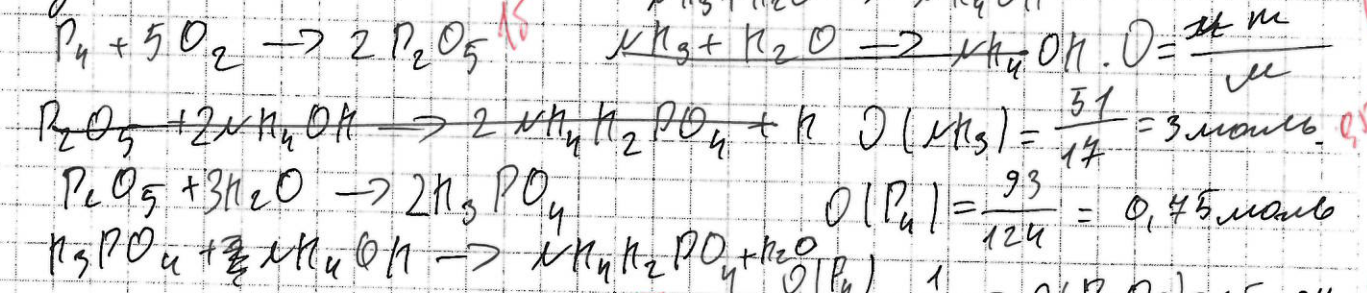 NH₃ + H₂O → NH₄OH
P₄ + 5O₂ → 2P₂O₅ 1б NH₃ + H₂O → NH₄OH. υ = m/M
P₂O₅ + 2NH₄OH → 2NH₄H₂PO₄ + H υ(NH₃) = 51/17 = 3 моль.
P₂O₅ + 3H₂O → 2H₃PO₄ υ(P₄) = 93/124 = 0,75 моль
H₃PO₄ + NH₄OH → NH₄H₂PO₄ + H₂O
υ(P₄) 1